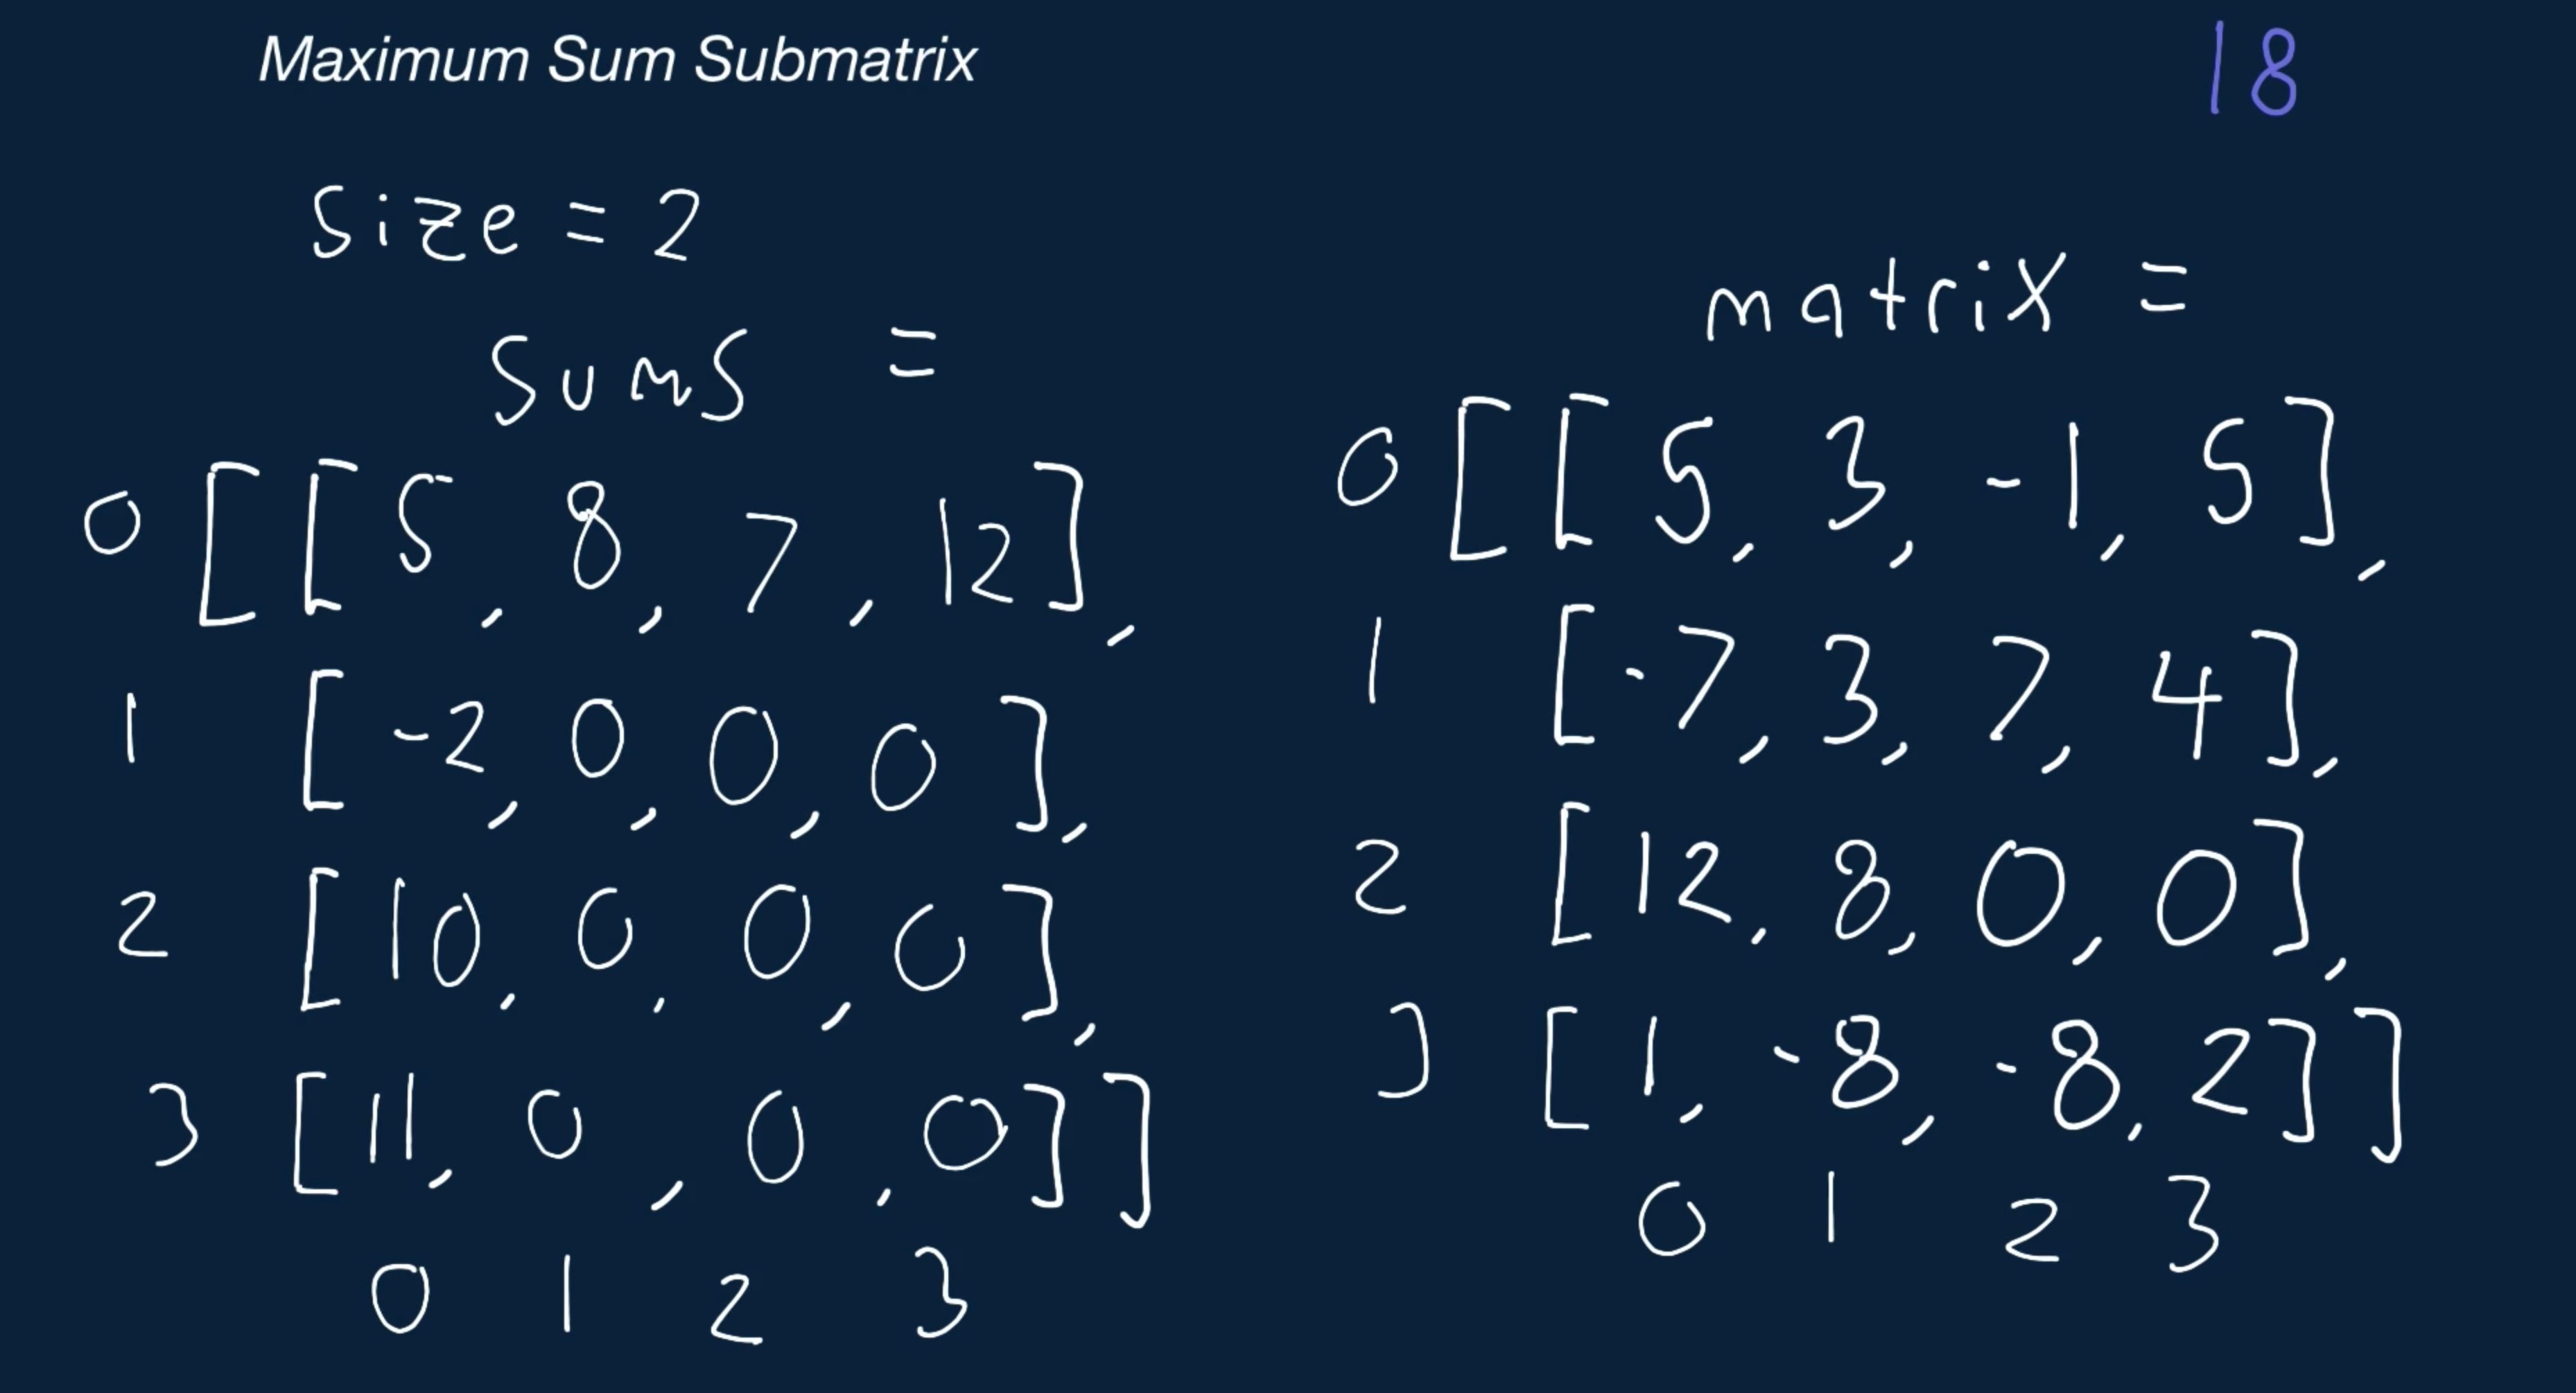 Maximum Sum Submatrix
18
size = 2
sums =
0 [[5, 8, 7, 12],
1 [-2, 0, 0, 0],
2 [10, 0, 0, 0],
3 [11, 0, 0, 0]]
0 1 2 3
matrix =
0 [[5, 3, -1, 5],
1 [-7, 3, 7, 4],
2 [12, 8, 0, 0],
3 [1, -8, -8, 2]]
0 1 2 3